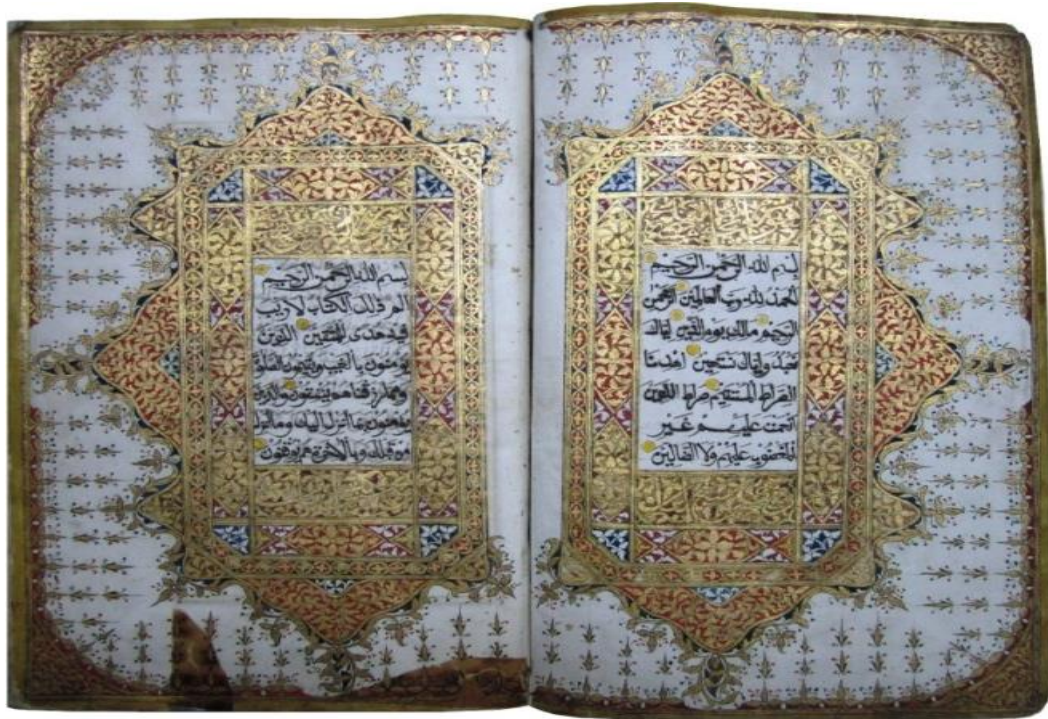 بسم الله الرحمن الرحيم
الحمد لله رب العالمين الرحمن
الرحيم مالك يوم الدين إياك
نعبد وإياك نستعين اهدنا
الصراط المستقيم صراط الذين
أنعمت عليهم غير
المغضوب عليهم ولا الضالين
بسم الله الرحمن الرحيم
الم ذلك الكتاب لا ريب
فيه هدى للمتقين الذين
يؤمنون بالغيب ويقيمون الصلوة
ومما رزقناهم ينفقون والذين
يؤمنون بما أنزل إليك وما أنزل
من قبلك وبالآخرة هم يوقنون